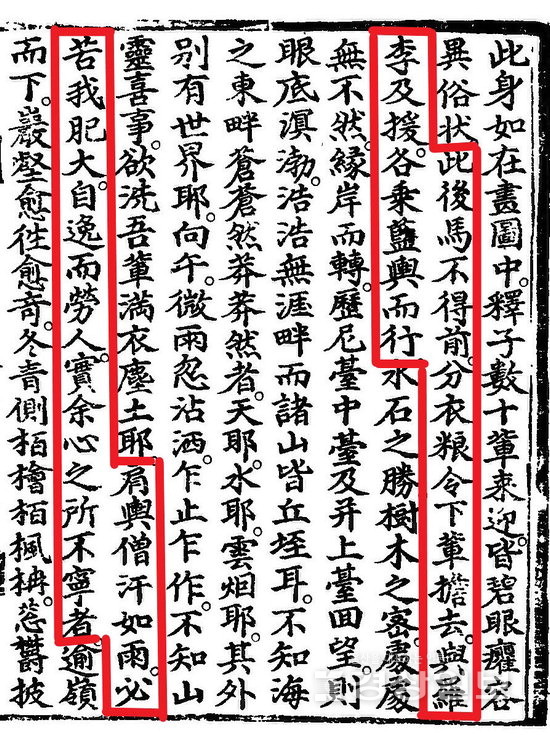 此身如在畫圖中。釋子數十輩來迎。皆碧眼癯容
異俗狀此後馬不得前。分衣粮令下輩擔去。與維
李及援。各乘籃輿而行水石之勝樹木之密處處
無不然。緣岸而轉。歷尼臺中臺及弁上臺回望。則
眼底溟渤。浩浩無涯畔而諸山皆丘垤耳。不知海
之東畔蒼蒼然莽莽然者。天耶。水耶。雲烟耶。其外
別有世界耶。向午。微雨忽沾洒。乍止乍作。不知山
靈喜事。欲洗吾輩滿衣塵土耶。肩輿僧汗如雨。必
苦我肥大。自逸而勞人。實余心之所不寧者。逾嶺
而下。巖壑愈徃愈奇。冬青側栢檜栢楓柟。蔥鬱披